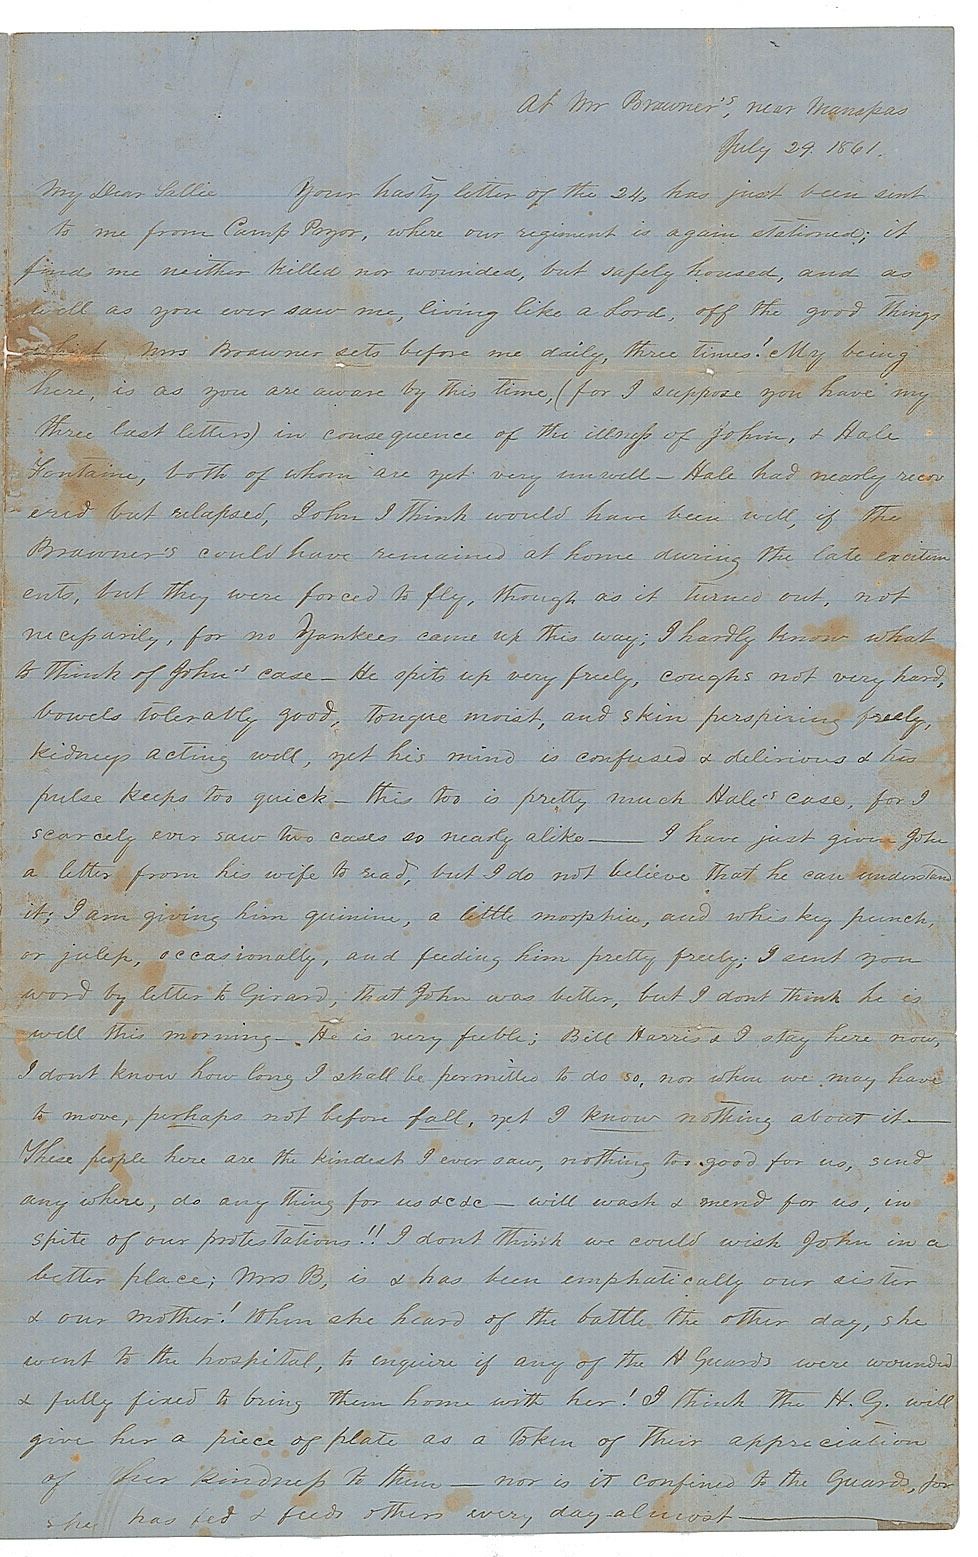 At Mr Brawner's, near Manspas
July 29. 1861.
My Dear Sallie Your hasty letter of the 24, has just been sent
to me from Camp Pryor, where our regiment is again stationed; it
finds me neither killed nor wounded, but safely housed, and as
well as you ever saw me, living like a Lord, off the good things
which Mrs Brawner sets before me daily, three times! My being
here, is as you are aware by this time, (for I suppose you have my
three last letters) in consequence of the illness of John, & Hale
Fontaine, both of whom are yet very unwell — Hale had nearly recov
ered but relapsed, John I think would have been well, if the
Brawner's could have remained at home during the late excitem
ents, but they were forced to fly, though as it turned out, not
necessarily, for no Yankees came up this way; I hardly know what
to think of John's case — He spits up very freely, coughs not very hard,
bowels tolerably good, tongue moist, and skin perspiring freely,
kidneys acting well, yet his mind is confused & delirious & his
pulse keeps too quick — this too is pretty much Hale's case, for I
scarcely ever saw two cases so nearly alike — I have just given John
a letter from his wife to read, but I do not believe that he can understand
it; I am giving him quinine, a little morphia, and whiskey punch,
or julep, occasionally, and feeding him pretty freely; I sent you
word by letter to Girard, that John was better, but I dont think he is
well this morning — He is very feeble; Bill Harris & I stay here now,
I dont know how long I shall be permitted to do so, nor when we may have
to move, perhaps not before fall, yet I know nothing about it —
These people here are the kindest I ever saw, nothing too good for us, send
any where, do any thing for us &c &c — will wash & mend for us, in
spite of our protestations!! I dont think we could wish John in a
better place; Mrs B, is & has been emphatically our sister
& our mother! When she heard of the battle the other day, she
went to the hospital, to enquire if any of the H Guards were wounded
& fully fixed to bring them home with her! I think the H. G. will
give her a piece of plate as a token of their appreciation
of her kindness to them — nor is it confined to the Guards, for
she has fed & feeds others every day almost —